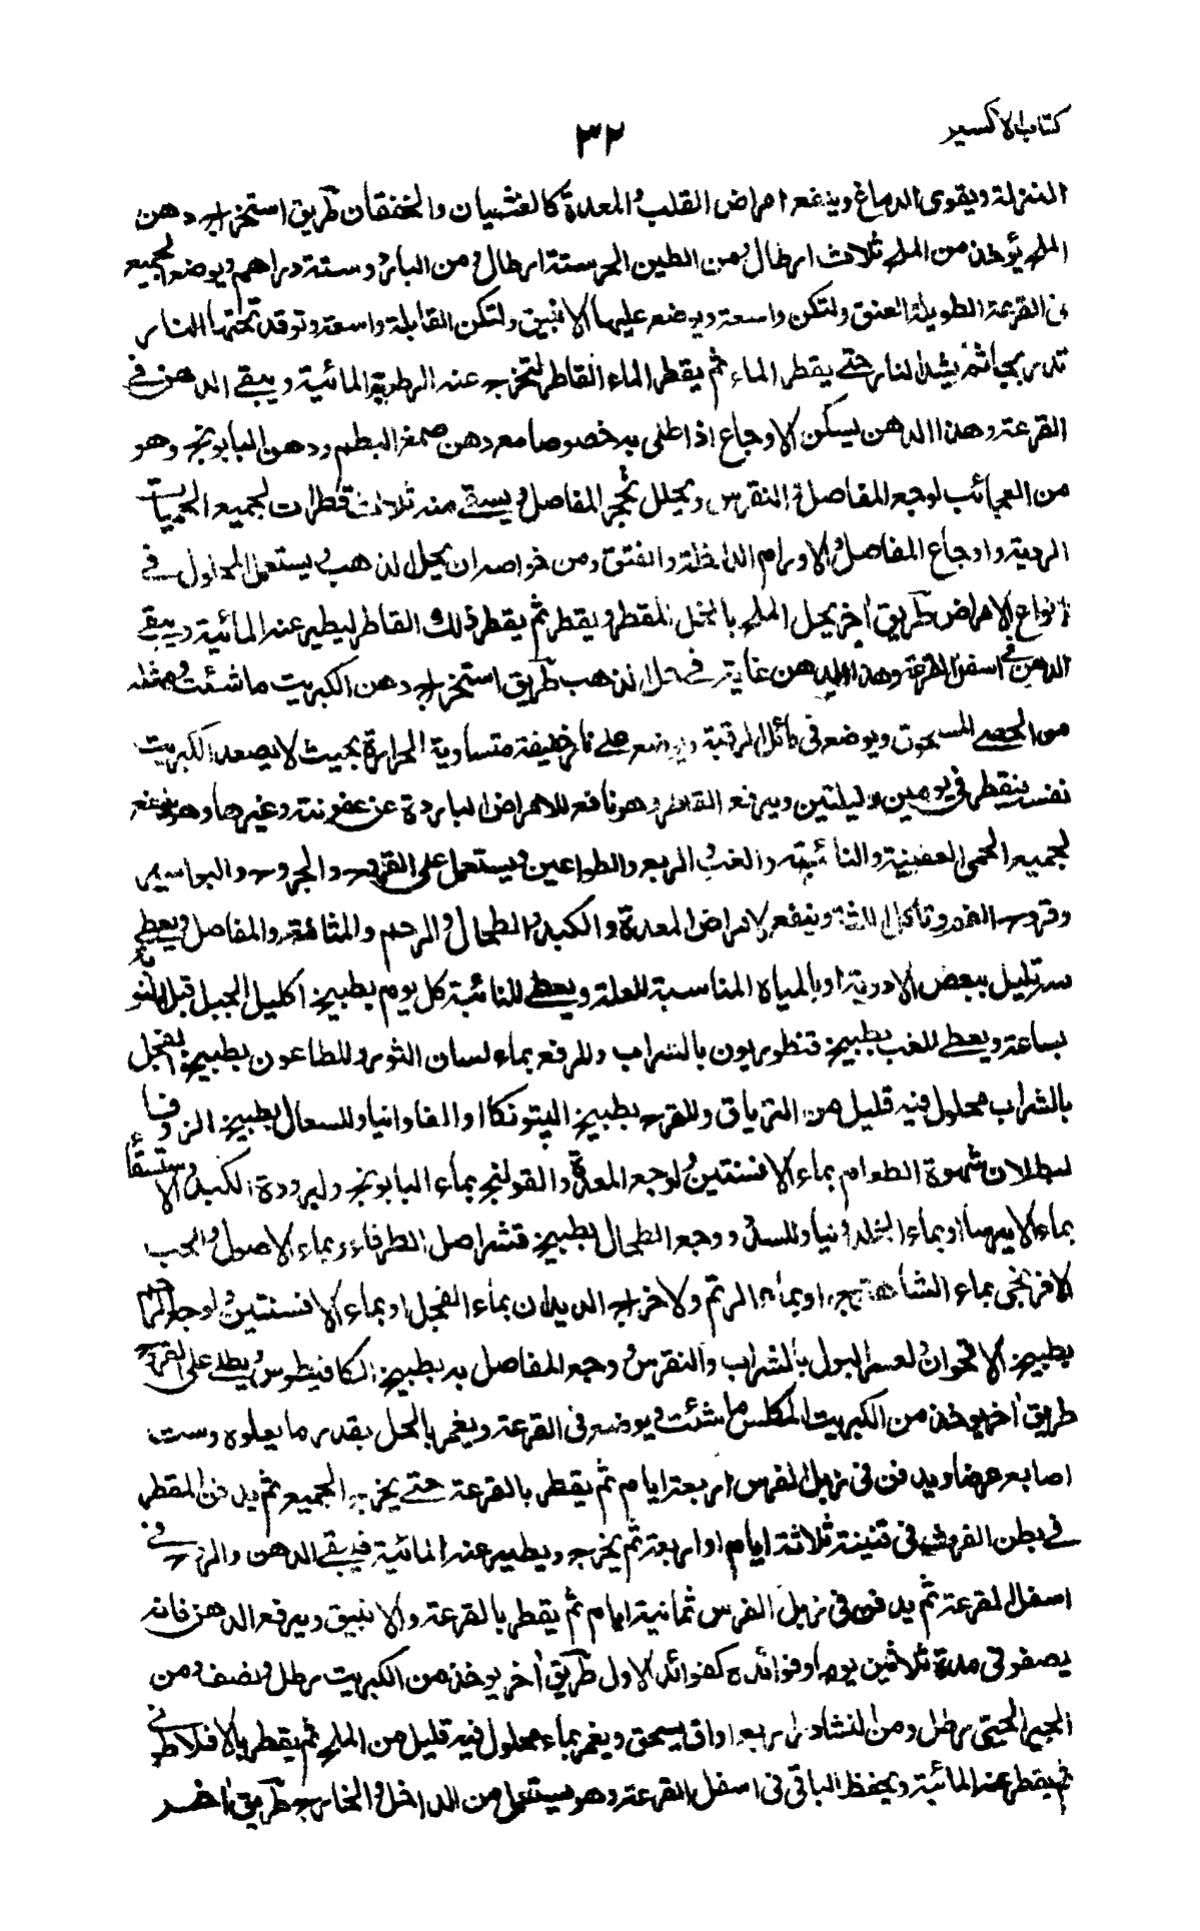 كتاب الاكسير
٣٢
النزلة ويقوى الدماغ وينفع امراض القلب والمعدة كالغشيان والخفقان طريق استخراج دهن
الملح يؤخذ من الملح ثلاث ارطال ومن الطين الحر ستة ارطال ومن البارود ستة دراهم ويوضع الجميع
فى القرعة الطويلة العنق ولتكن واسعة ويوضع عليها الانبيق ولتكن القابلة واسعة وتوقد تحتها النار
تدريجا ثم يشد النار حتى يقطر الماء ثم يقطر الماء القاطر لتخرج عنه الرطوبة المائية ويبقى الدهن فى
القرعة وهذا الدهن يسكن الاوجاع اذا طلى به خصوصا مع دهن صمغ البطم ودهن البابونج وهو
من العجائب لوجع المفاصل والنقرس ويحلل تحجر المفاصل ويسقى منه ثلاث قطرات لجميع الحميات
الردية واوجاع المفاصل والاورام الداخلة والفتق ومن خواصه ان يحل الذهب ويستعمل المحلول فى
انواع الامراض طريق اخر يحل الملح بالخل المقطر ويقطر ثم يقطر ذلك القاطر ليطير عنه المائية ويبقى
الدهن فى اسفل القرعة وهذا الدهن غاية فى حل الذهب طريق استخراج دهن الكبريت ما شئت ومثله
من الحصى المسحوق ويوضع فى مائل الرقبة ويوضع على نار خفيفة متساوية الحرارة بحيث لا يصعد الكبريت
نفسه ينقطر فى يومين وليلتين ويرفع القاطر وهو نافع للامراض الباردة عن عفونة وغيرها وهو نافع
لجميع الحمى العفنية والنائبة والغب والربع والطواعين ويستعمل على القروح والجروح والبواسير
وقروح الفم وتأكل اللثة وينفع لامراض المعدة والكبد والطحال والرحم والمثانة والمفاصل ويعطى
قليل ببعض الادوية او بالمياه المناسبة للعلة ويعطى للنائبة كل يوم بطبيخ اكليل الجبل قبل النوبة
بساعة ويعطى للغب بطبيخ قنطوريون بالشراب وللرفع بماء لسان الثور وللطاعون بطبيخ الفجل
بالشراب محلول فيه قليل من الترياق وللقرح بطبيخ البتونكا او الفاوانيا وللسعال بطبيخ الزوفا
لبطلان شهوة الطعام بماء الافسنتين ولوجع المعدة والقولنج بماء البابونج ولبرودة الكبد والاستسقا
بماء الايرسا او بماء الخلدونيا وللسدد ووجع الطحال بطبيخ قشر اصل الطرفاء وبماء الاصول والحب
الافرنجى بماء الشاهترج او بماء الرتم ولاخراج الديدان بماء الفجل او بماء الافسنتين ولوجع الرحم
بطبيخ الاقحوان ولعسر البول بالشراب والنقرس ووجع المفاصل بد بطبيخ الكافيطوس ويطلى على القرحة
طريق اخر يوخذ من الكبريت المكلس ما شئت ويوضع فى القرعة ويغمر بالخل بقدر ما يعلوه وست
اصابع عرضا ويدفن فى زبل الفرس اربعة ايام ثم يقطر بالقرعة حتى يخرج الجميع ثم يدفن المقطر
فى بطن الفرس فى قنينة ثلاثة ايام او اربعة ثم يخرج ويطير عنه المائية فيبقى الدهن والزرح فى
اسفل القرعة ثم يدفن فى زبل الفرس ثمانية ايام ثم يقطر بالقرعة والانبيق ويرفع الدهن فانه
يصفو فى مدة ثلاثين يوما وفوائده كفوائد الاول طريق اخر يوخذ من الكبريت رطل ونصف ومن
الجير الحى رطل ومن النشادر اربع اواق يسحق ويغمر بماء محلول فيه قليل من الملح ثم يقطر بالافلاطونى
ثم يقطر عنه المائية ويحفظ الباقى فى اسفل القرعة وهو يستعمل من الداخل والخارج طريق اخر